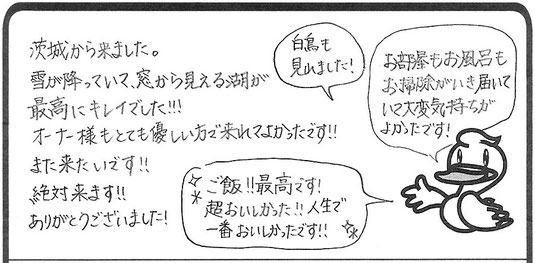 茨城から来ました。
雪が降っていて、窓から見える湖が
最高にキレイでした!!!
オーナー様もとても優しい方で来れてよかったです!!
また来たいです!!
絶対来ます!!
ありがとうございました!
白鳥も
見れました!
お部屋もお風呂も
お掃除がいき届いて
いて大変気持ちが
よかったです!
ご飯!!最高です!
超おいしかった!!人生で
一番おいしかったです!!